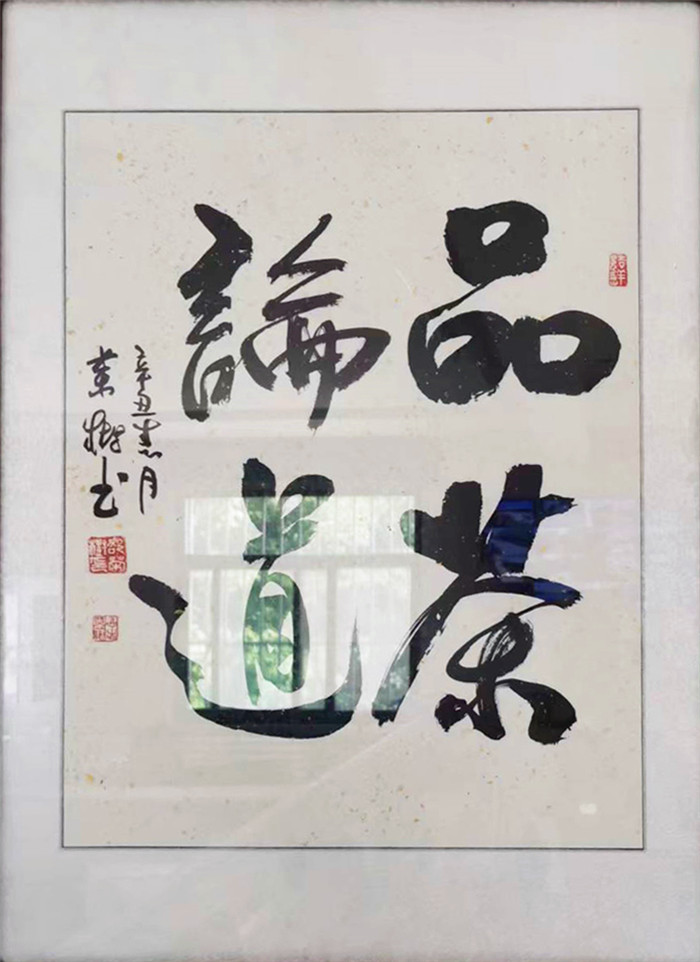 品茶
論道
辛丑春月
業樹书